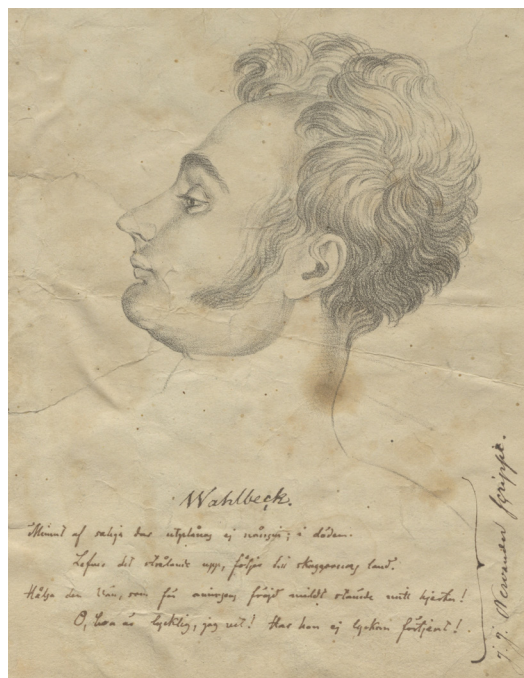 Wahlbeck.
Minnet af saliga dar utplånas ej ens i döden.
Lefver det strålande upp, följer till skuggornas land.
Hälsa den Vän, som för mig fröjd mildt hjerta!
O, han är lycklig, jag vet! Har han ej lyckan förtjent!
J. J. Nervander scripsit.